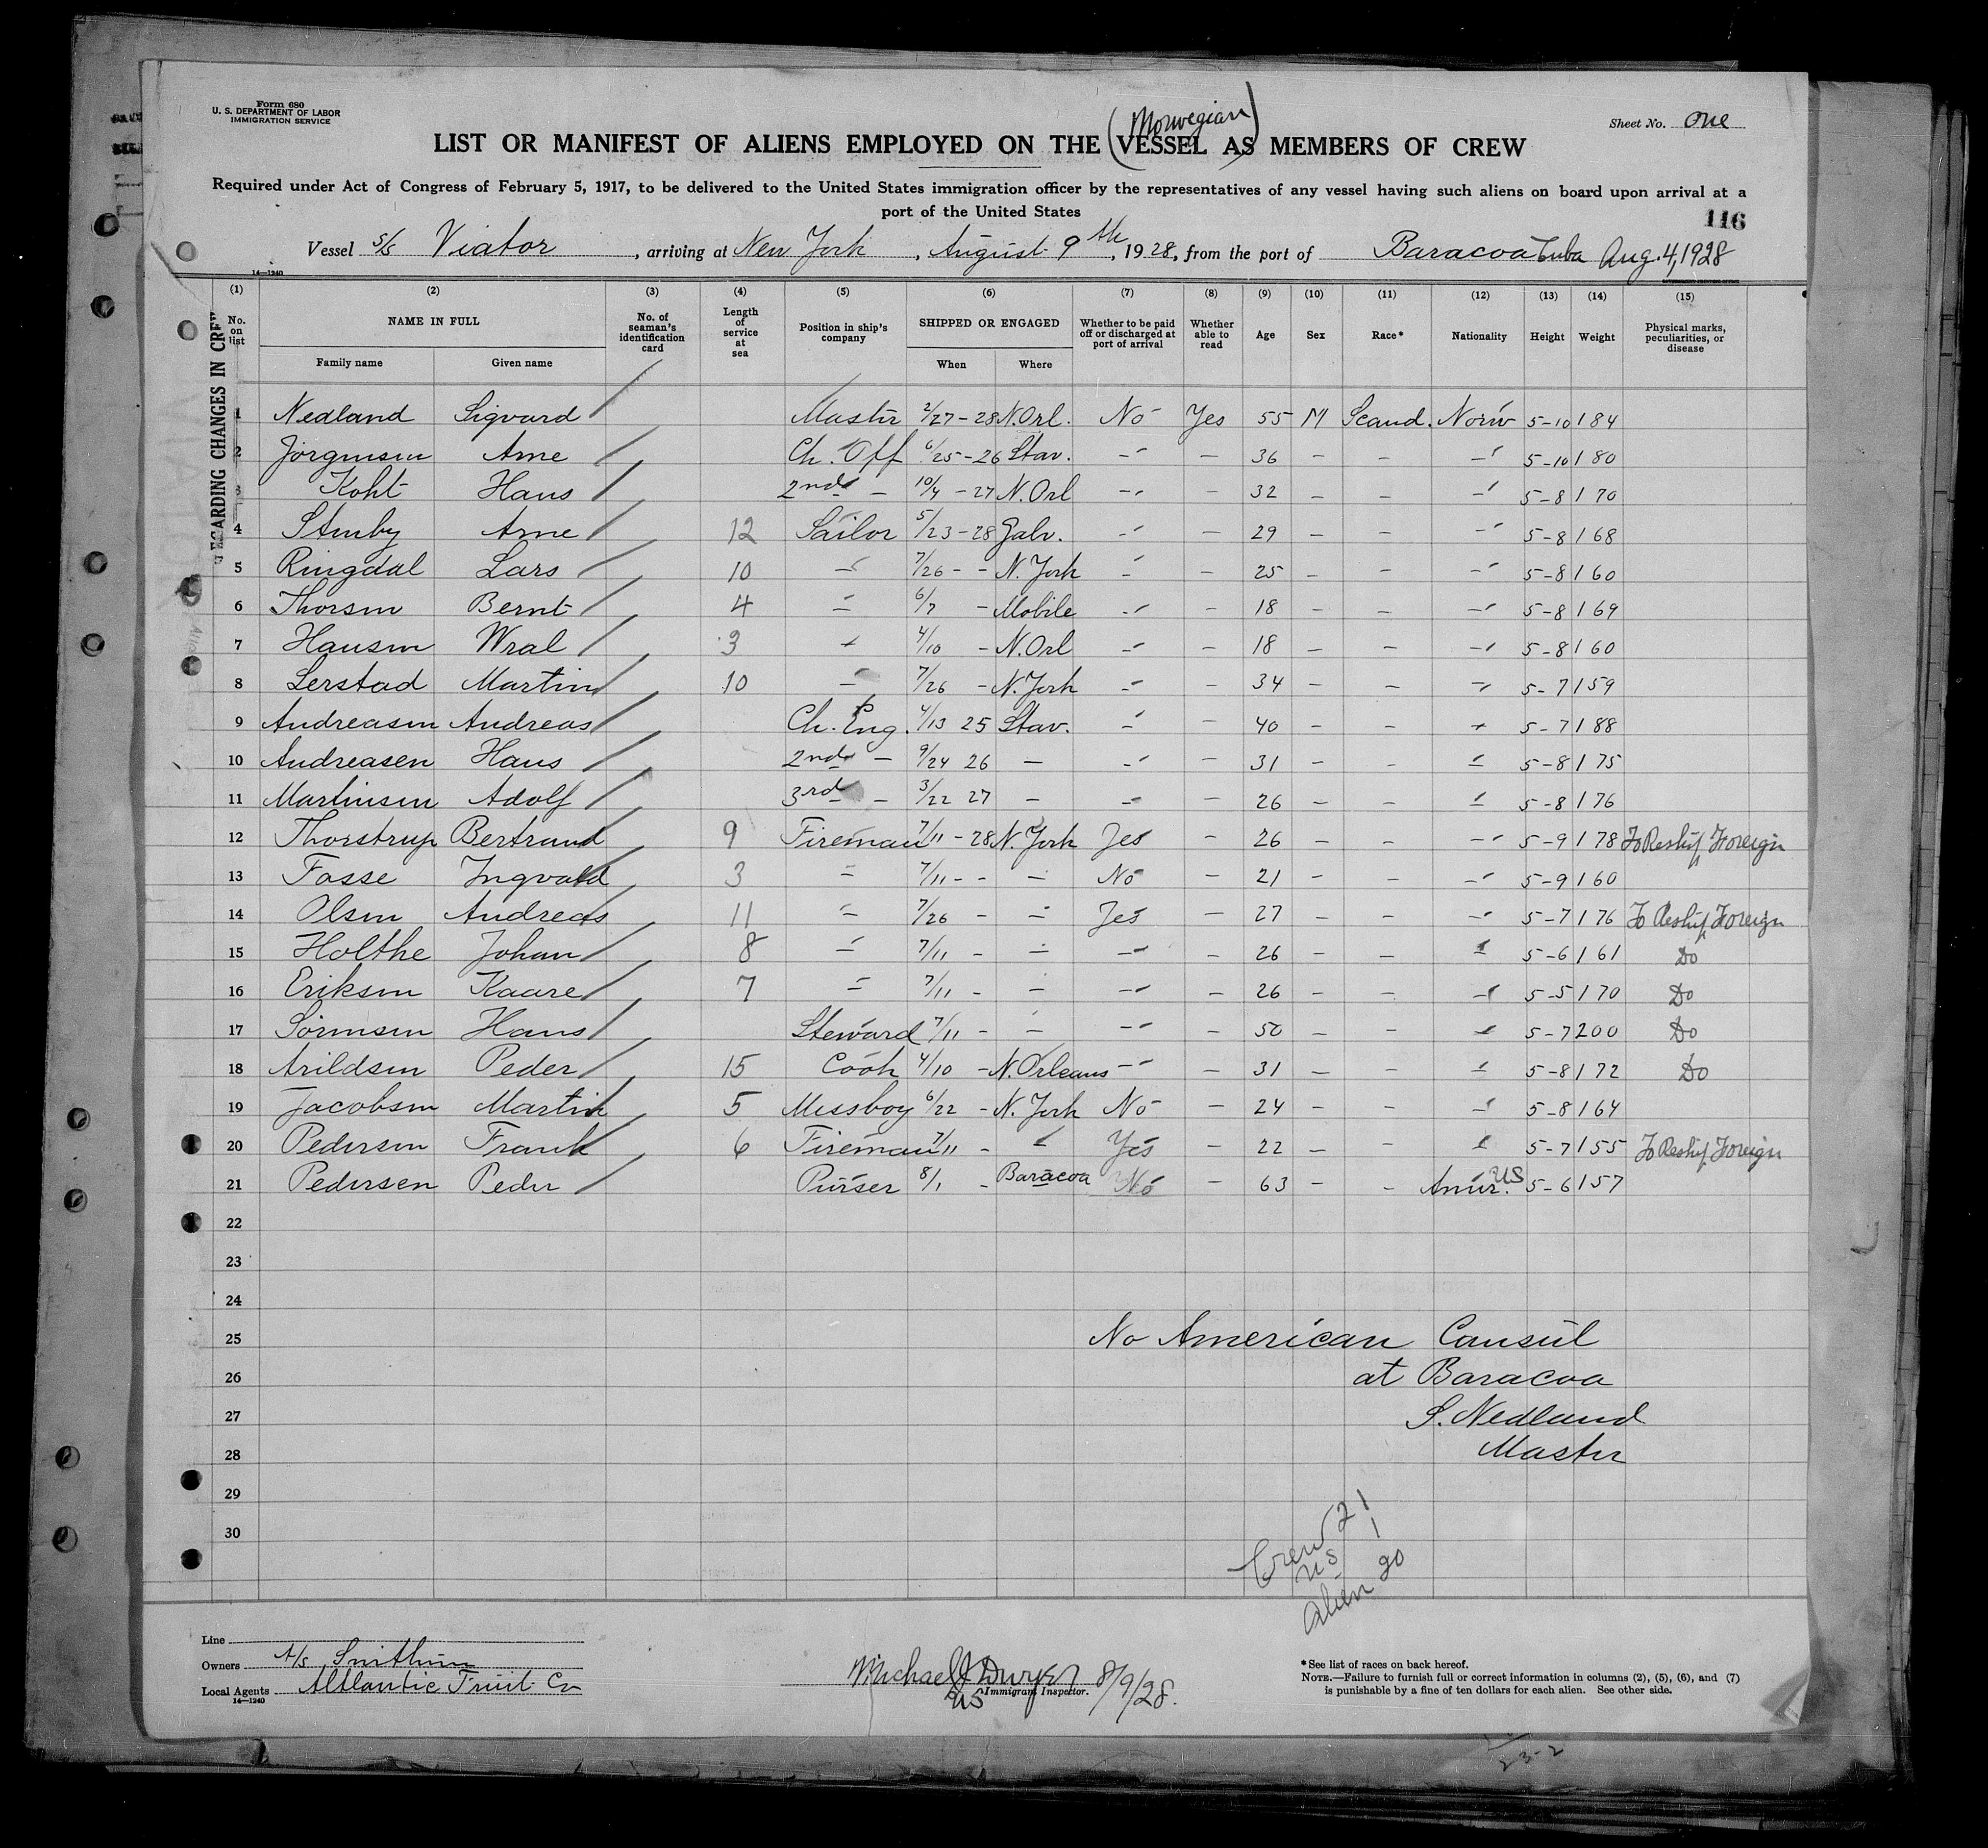 Form 680
U. S. DEPARTMENT OF LABOR
IMMIGRATION SERVICE
Sheet No. One
(Norwegian)
LIST OR MANIFEST OF ALIENS EMPLOYED ON THE VESSEL AS MEMBERS OF CREW
Required under Act of Congress of February 5, 1917, to be delivered to the United States immigration officer by the representatives of any vessel having such aliens on board upon arrival at a
port of the United States
116
Vessel S/S Viator, arriving at New York, August 9th, 1928, from the port of Baracoa Cuba Aug. 4, 1928
14—1240
REGARDING CHANGES IN CREW
(1) (2) (3) (4) (5) (6) (7) (8) (9) (10) (11) (12) (13) (14) (15)
No. on list NAME IN FULL No. of seaman's identification card Length of service at sea Position in ship's company SHIPPED OR ENGAGED Whether to be paid off or discharged at port of arrival Whether able to read Age Sex Race* Nationality Height Weight Physical marks, peculiarities, or disease
Family name Given name When Where
1 Nedland Sigvard Master 2/27-28 N.Orl. No Yes 55 M Scand. Norw 5-10 184
2 Jörgensen Arne Ch. Off 6/25-26 Stav. -"- - 36 - - -"- 5-10 180
3 Koht Hans 2nd - 10/4-27 N.Orl -"- - 32 - - -"- 5-8 170
4 Stenby Arne 12 Sailor 5/23-28 Galv. -"- - 29 - - -"- 5-8 168
5 Ringdal Lars 10 -"- 7/26 - - N. York -"- - 25 - - -"- 5-8 160
6 Thorsen Bernt 4 -"- 6/7 - Mobile -"- - 18 - - -"- 5-8 169
7 Hansen Wral 3 -"- 4/10 - N.Orl -"- - 18 - - -"- 5-8 160
8 Lerstad Martin 10 -"- 7/26 - N. York -"- - 34 - - -"- 5-7 159
9 Andreasen Andreas Ch. Eng. 4/13 25 Stav. -"- - 40 - - -"- 5-7 188
10 Andreasen Hans 2nd - 9/24 26 - -"- - 31 - - -"- 5-8 175
11 Martinsen Adolf 3rd - 3/22 27 - -"- - 26 - - -"- 5-8 176
12 Thorstrup Bertrand 9 Fireman 7/11-28 N. York Yes - 26 - - -"- 5-9 178 To Reship Foreign
13 Fosse Ingvald 3 -"- 7/11 - - -"- No - 21 - - -"- 5-9 160
14 Olsen Andreas 11 -"- 7/26 - -"- Yes - 27 - - -"- 5-7 176 To Reship Foreign
15 Holthe Johan 8 -"- 7/11 - -"- -"- - 26 - - -"- 5-6 161 Do
16 Eriksen Kaare 7 -"- 7/11 - -"- -"- - 26 - - -"- 5-5 170 Do
17 Sörensen Hans Steward 7/11 - -"- -"- - 50 - - -"- 5-7 200 Do
18 Arildsen Peder 15 Cook 4/10 - N. Orleans -"- - 31 - - -"- 5-8 172 Do
19 Jacobsen Martin 5 Messboy 6/22 - N. York No - 24 - - -"- 5-8 164
20 Pedersen Frank 6 Fireman 7/11 - -"- Yes - 22 - - -"- 5-7 155 To Reship Foreign
21 Pedersen Peder Purser 8/1 - Baracoa No - 63 - - Amer. US 5-6 157
22
23
24
25 No American Consul
26 at Baracoa
27 S. Nedland
28 Master
29
30
Crew 21
US 1
Alien 20
Line
Owners A/S Smithun
Local Agents Atlantic Fruit Co
14—1240
Michael J Dwyer 8/9/28.
US Immigrant Inspector.
*See list of races on back hereof.
NOTE.—Failure to furnish full or correct information in columns (2), (5), (6), and (7)
is punishable by a fine of ten dollars for each alien. See other side.
23-2